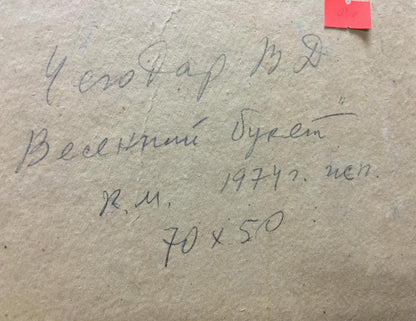 Чегодар В Д
Весенний букет"
к.м. 1974 г. исп.
70 х 50